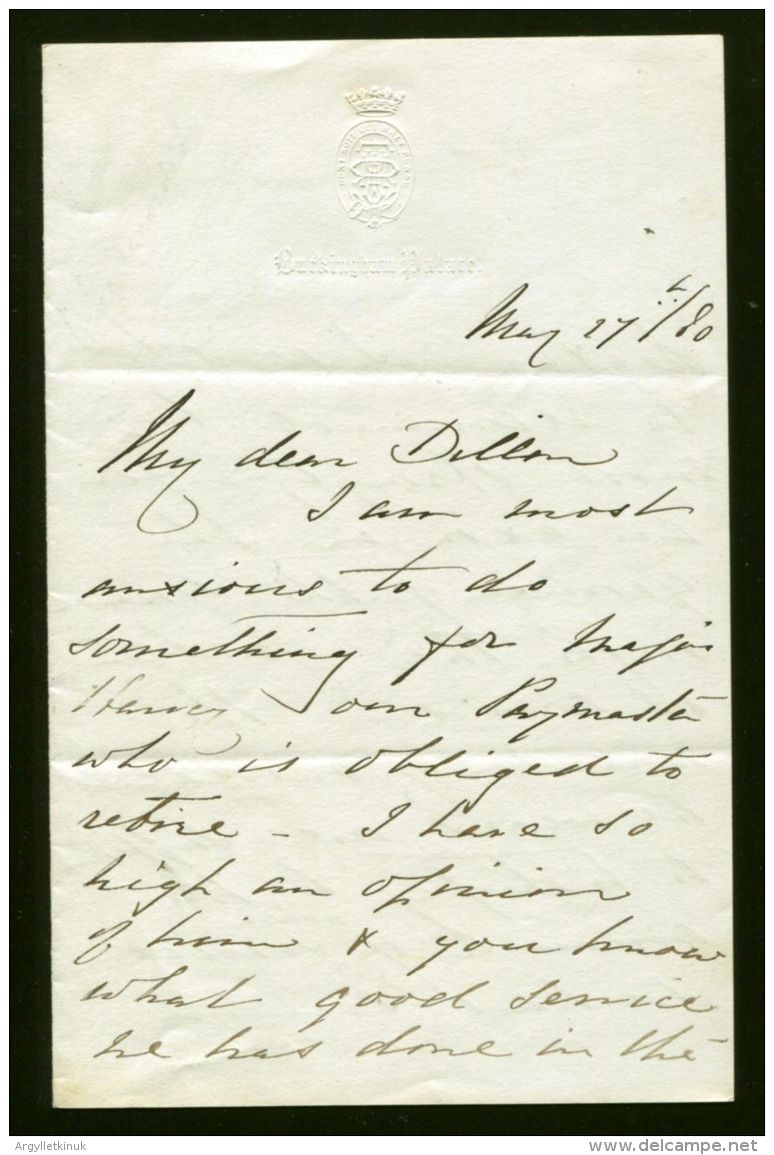 HONI SOIT QUI MAL Y PENSE
Buckingham Palace.
May 27th/80
My dear Dillon
I am most
anxious to do
something for Major
Harvey our Paymaster
who is obliged to
retire - I have so
high an opinion
of him & you know
what good service
he has done in the
Argylletkinuk
delcampe.net